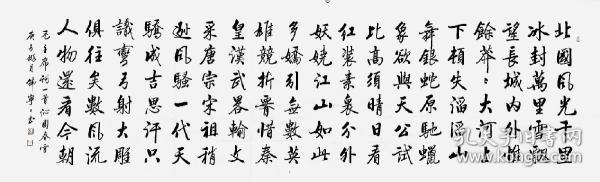 北國風光千里
冰封萬里雪飄
望長城內外惟
餘莽莽大河上
下頓失滔滔山
舞銀蛇原馳蠟
象欲與天公試
比高須晴日看
紅裝素裹分外
妖嬈江山如此
多嬌引無數英
雄競折腰惜秦
皇漢武略輸文
采唐宗宋祖稍
遜風騷一代天
驕成吉思汗只
識彎弓射大雕
俱往矣數風流
人物還看今朝
毛主席詞一首沁園春雪
庚子
孔夫子旧书网